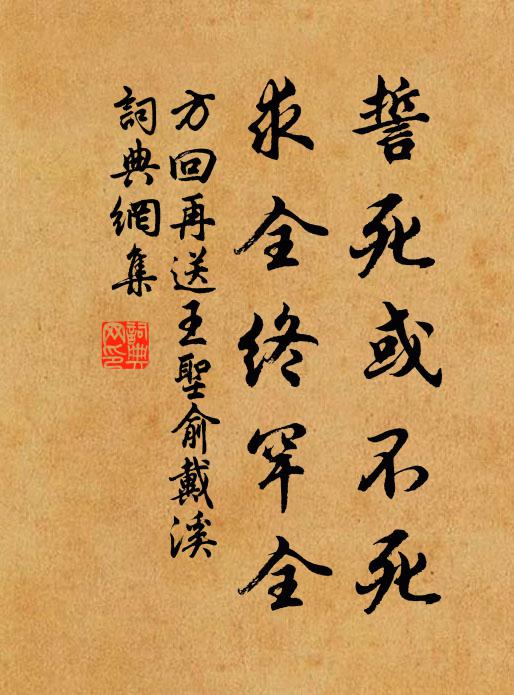 誓死或不死
求全終罕全
方回再送王聖俞戴溪
詞典網集
詞典网印